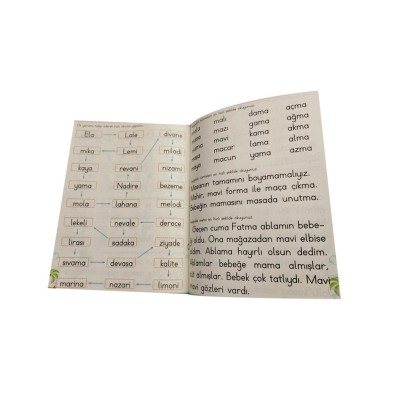 Ela Lale divane
mika Lemi miladi
kaya revani nizami
yama Nadire bezeme
mola lahana melodi
lekeli nevale derece
lirası sadaka ziyade
sıvama devasa kalite
marina nazari limoni
mali dama açma
mazı gama ağma
mavi kama akma
macar lama alma
macun yama azma
Masanın tamamını boyamamalıyız.
Mahir, mavi forma ile maça çıkma.
Bebeğin mamasını masada unutma.
Geçen cuma Fatma ablamın bebe-
oldu. Ona mağazadan mavi elbise
dım. Ablama hayırlı olsun dedim.
Ablamlar bebeğe mama almışlar,
almışlar. Bebek çok tatlıydı. Mavi
mavi gözleri vardı.